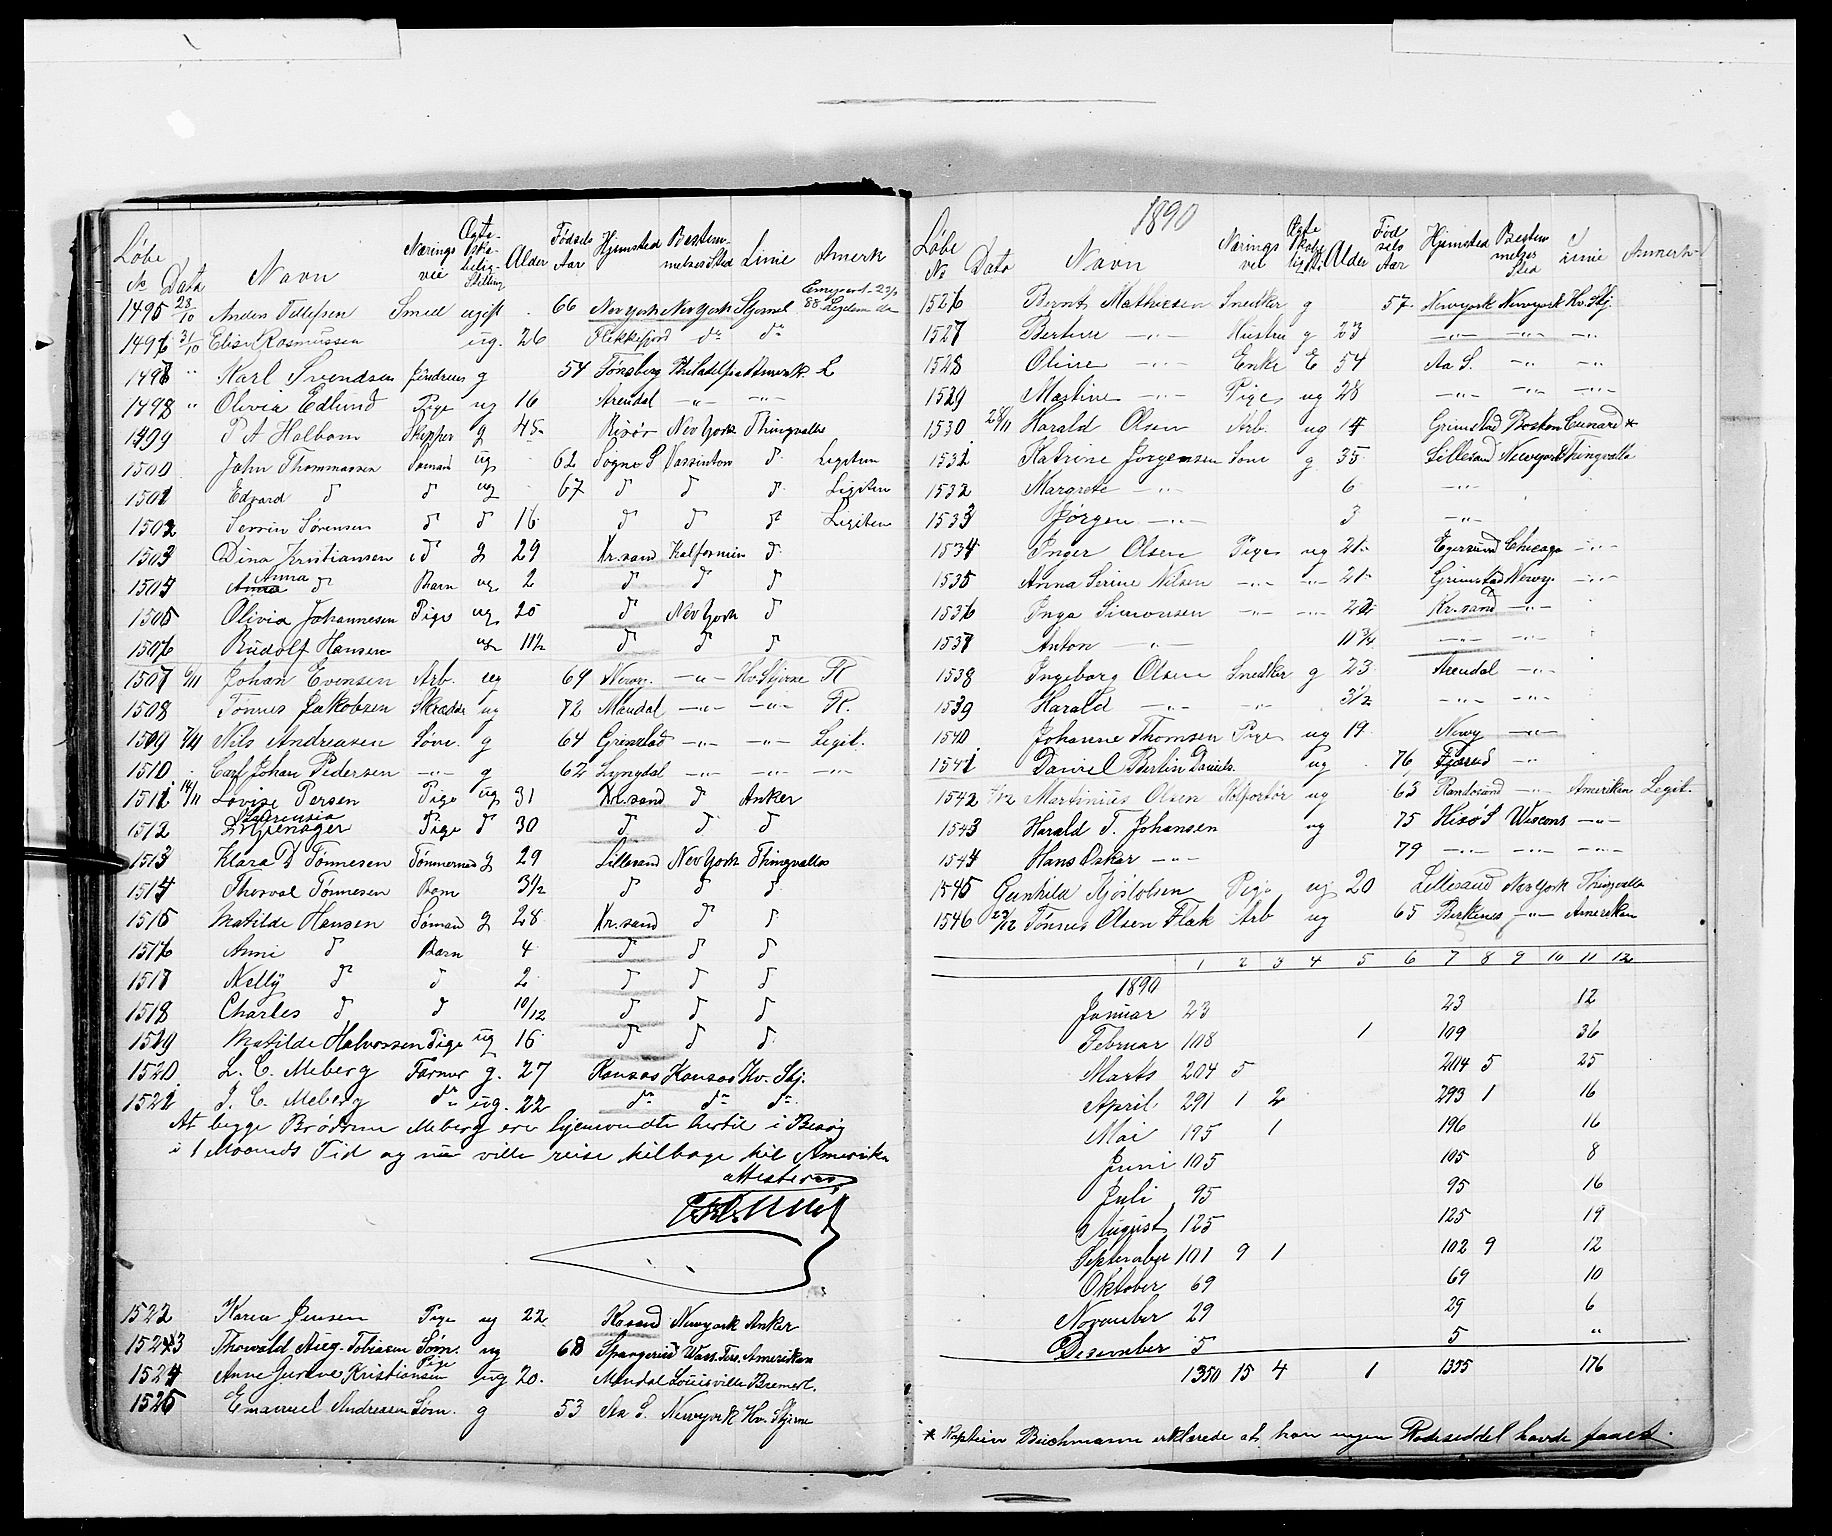 Løbe № Dato Navn Nærings vei Ægteskabelig Stilling Alder Fødsels Aar Hjemsted Bestemmelses Sted Linie Anmerk
1495 28/10 Anders Tellefsen Smed ugift 66 New York New York Stjernel
1496 31/10 Elise Rasmussen ug. 26 Flekkefjord do do
1497 " Karl Svendsen g 54 Tønsberg Philadelfia Amerik. L
1498 " Olivia Edlund Pige ug 16 Arendal -"- -"-
1499 P A Holbom Skipper g 45 Risør New York Thingvalla
1500 John Thommassen Sømand ug 62 Sogne S Vassinton d Legiten
1501 Edvard d d ug 67 d d d Legiten
1502 Serrin Sørensen d d 16 d d d Legiten
1503 Dina Kristiansen d g 29 Kr.sand Kalfornien d
1504 Anna d Barn ug 2 d d d
1505 Olivia Johannesen Pige ug 25 d New York d
1506 Rudolf Hansen ug 11/2 d d d
1507 6/11 Johan Evensen Arb. ug 69 Newy. -"- Hv. Stjerne R
1508 Tønnes Jakobsen Skrædder ug 72 Mandal -"- -"- R.
1509 7/11 Nils Andreasen Søm. g 64 Grimstad -"- -"- Legit.
1510 Carl Johan Pedersen -"- g 62 Lyngdal -"- -"- -"-
1511 14/11 Lovise Persen Pige ug 31 Kr.sand d Anker
1512 Pige d 30 d d d
1513 Klara D Tønnesen Tømmermd g 29 Lillesand New York Thingvalla
1514 Thorval Tønnesen Barn 3 1/2 d d d
1515 Matilde Hansen Sømand g 28 Kr.sand d d
1516 Anni d Barn 4 d d d
1517 Nelly d d 2 d d d
1518 Charles d d 10/12 d d d
1519 Matilde Halvorsen Pige ug 16 d d d
1520 L. C. Meberg Farmer g. 27 Kansas Kansas Hv. Stj.
1521 J. C. Meberg do ug. 22 do do do
At begge Brødrene Meberg ere hjemvendte hertil i Besøg
i 1 Maaneds Tid og nu ville reise tilbage til Amerika
attesteres
1522 Karen Jensen Pige ug 22 Krsand Newyork Anker
1523 Thorvald Aug. Tobiasen Søm. ug 68 Spangereid Wass. Ters. Amerikan
1524 Anne Jurine Kristiansen Pige ug 20. Mandal Louisville Bremerl.
1525 Emanuel Andreasen Søm. g 53 Aa S. Newyork Hv. Stjerne
1890
Løbe № Dato Navn Nærings vei Ægteskabelig Still. Alder Fødsels Aar Hjemsted Bestemmelses Sted Linie Anmerk
1526 Bernt Mathiesen Snedker g 57 Newyork Newyork Hv. Stj
1527 -"- Hustru g 23 -"- -"- -"-
1528 Oline -"- Enke E 54 Aa S. -"- -"-
1529 Martine -"- Pige ug 28 -"- -"-
1530 28/11 Harald Olsen Arb. ug 17 Grimstad Boston Cunard *
1531 Katrine Jørgensen Søm g 35 Lillesand Newyork Thingvalla
1532 Margrete -"- 6 -"-
1533 Jørgen -"- 3 -"-
1534 Inger Olsen Pige ug 21 Egersund Chicago -"-
1535 Anna Serine Nilsen -"- -"- 21 Grimstad Newy. -"-
1536 Inga Simonsen -"- -"- 22 Kr.sand -"-
1537 Anton -"- -"- -"-
1538 Ingeborg Olsen Snedker g 23 Arendal -"-
1539 Harald -"- -"- 3 1/2 -"- -"-
1540 Johanne Thomsen Pige ug 19 Newy -"-
1541 Daniel Berlin Daniels. ug 76 -"-
1542 Martinius Olsen Kolportør ug 63 Randesund -"- Amerikan Legit.
1543 Harald T. Johansen ug 75 Hisø S Wiscons -"-
1544 Hans Oskar -"- 79 -"- -"- -"-
1545 Gunhild Kjøstolsen Pige ug 20 Lillesand New York Thingvalla
1546 Tønnes Olsen Flak Arb ug 65 Birkenes -"- Amerikan
1 2 3 4 5 6 7 8 9 10 11 12
1890
Januar 23 23 12
Februar 108 1 109 36
Marts 204 5 204 5 25
April 291 1 2 293 1 16
Mai 195 1 196 16
Juni 105 105 8
Juli 95 95 16
August 125 125 19
September 101 9 1 102 9 12
Oktober 69 69 10
November 29 29 6
Desember 5 5 "
1350 15 4 1 1355 176
* Kaptein Buchmann erklærede at han ingen Rodeseddel havde faaet.